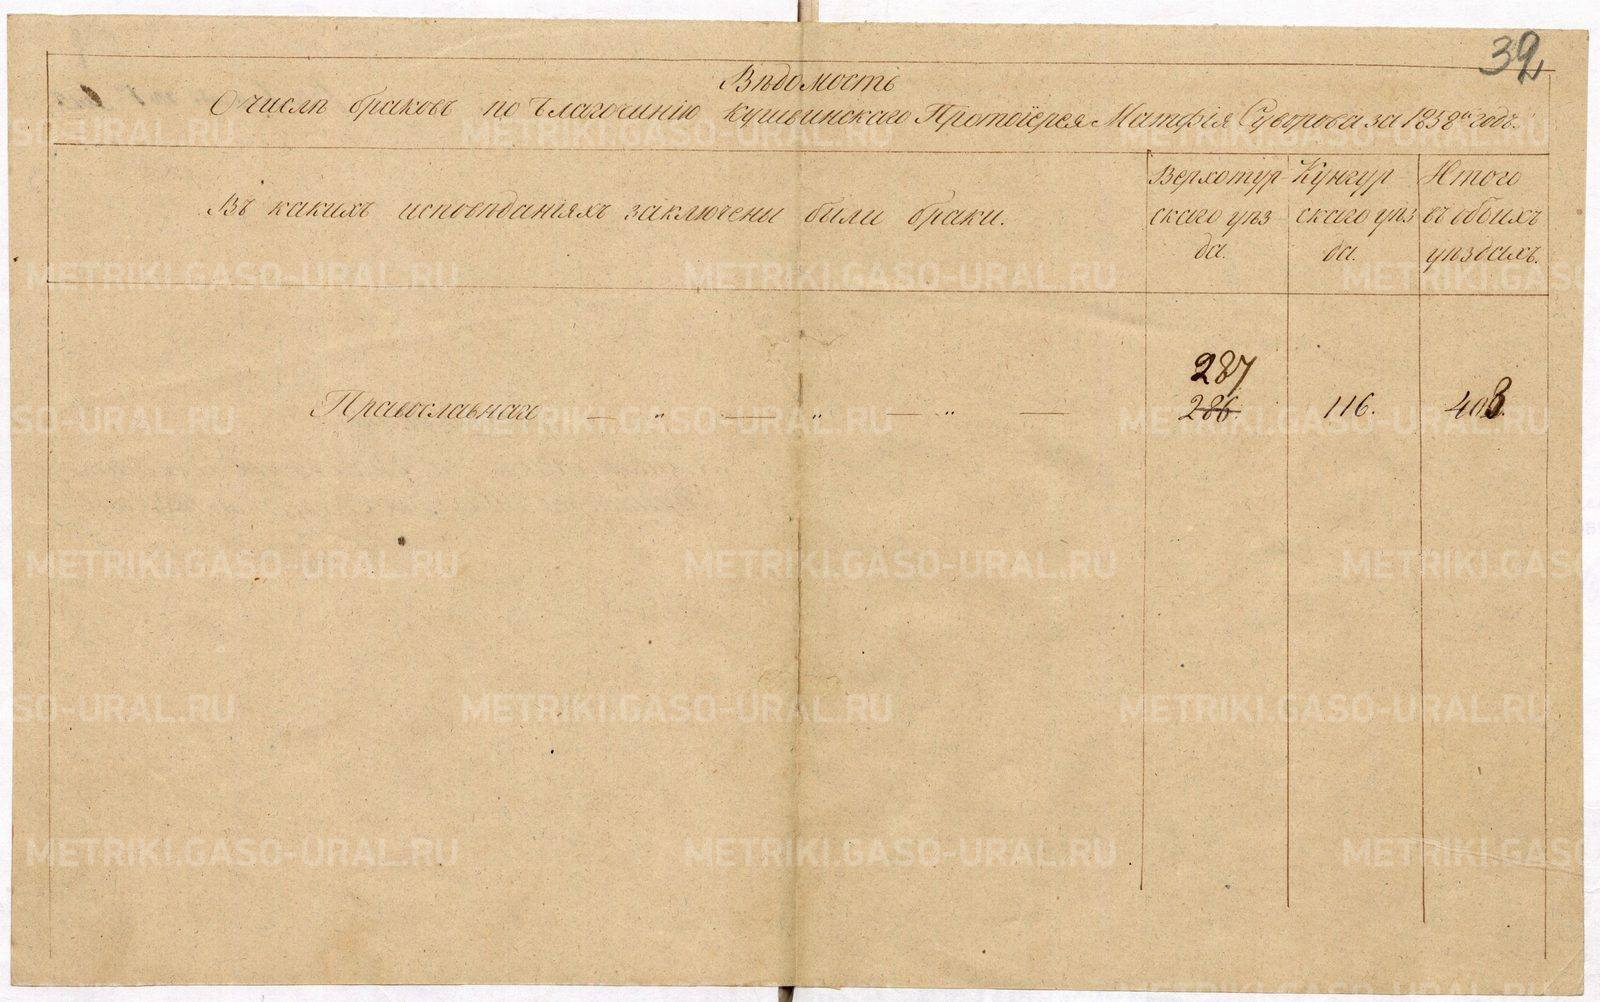 39
Вѣдомость
О числѣ браковъ по благочинію Кушвинскаго Протоіерея Матфія Суворова за 1858й годъ.
Въ какихъ исповѣданіяхъ заключены были браки.
Верхотур
скаго уѣз
да.
Кунгур
скаго уѣз
да.
Итого
въ обоихъ
уѣздахъ.
287
Православнаго — „ — „ — „ — 286. 116. 403.
METRIKI.GASO-URAL.RU